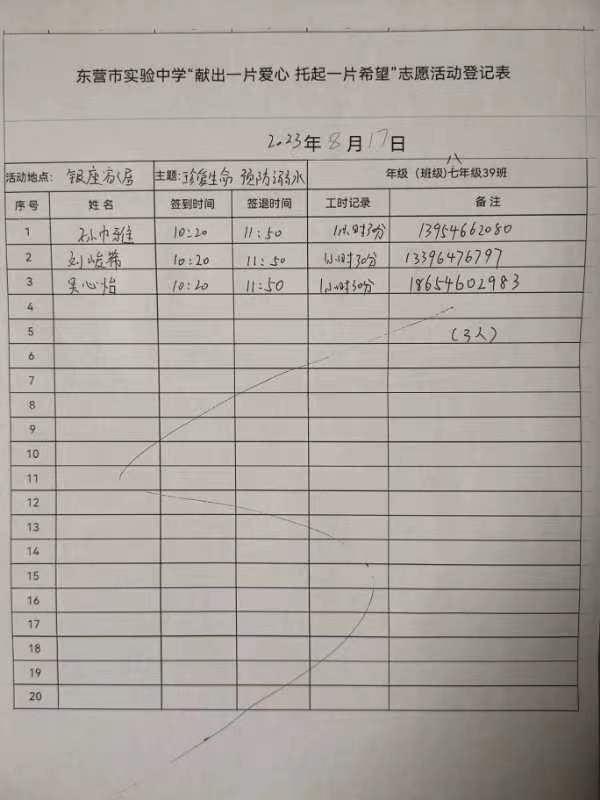 东营市实验中学“献出一片爱心 托起一片希望”志愿活动登记表
2023年 8月 17日
八
活动地点: 银座家居 主题: 珍爱生命 预防溺水 年级（班级）七年级39班
序号 姓名 签到时间 签退时间 工时记录 备注
1 孙巾雅 10:20 11:50 1小时30分 13954662080
2 刘峻希 10:20 11:50 1小时30分 13396476797
3 吴心怡 10:20 11:50 1小时30分 18654602983
4
5 (3人)
6
7
8
9
10
11
12
13
14
15
16
17
18
19
20